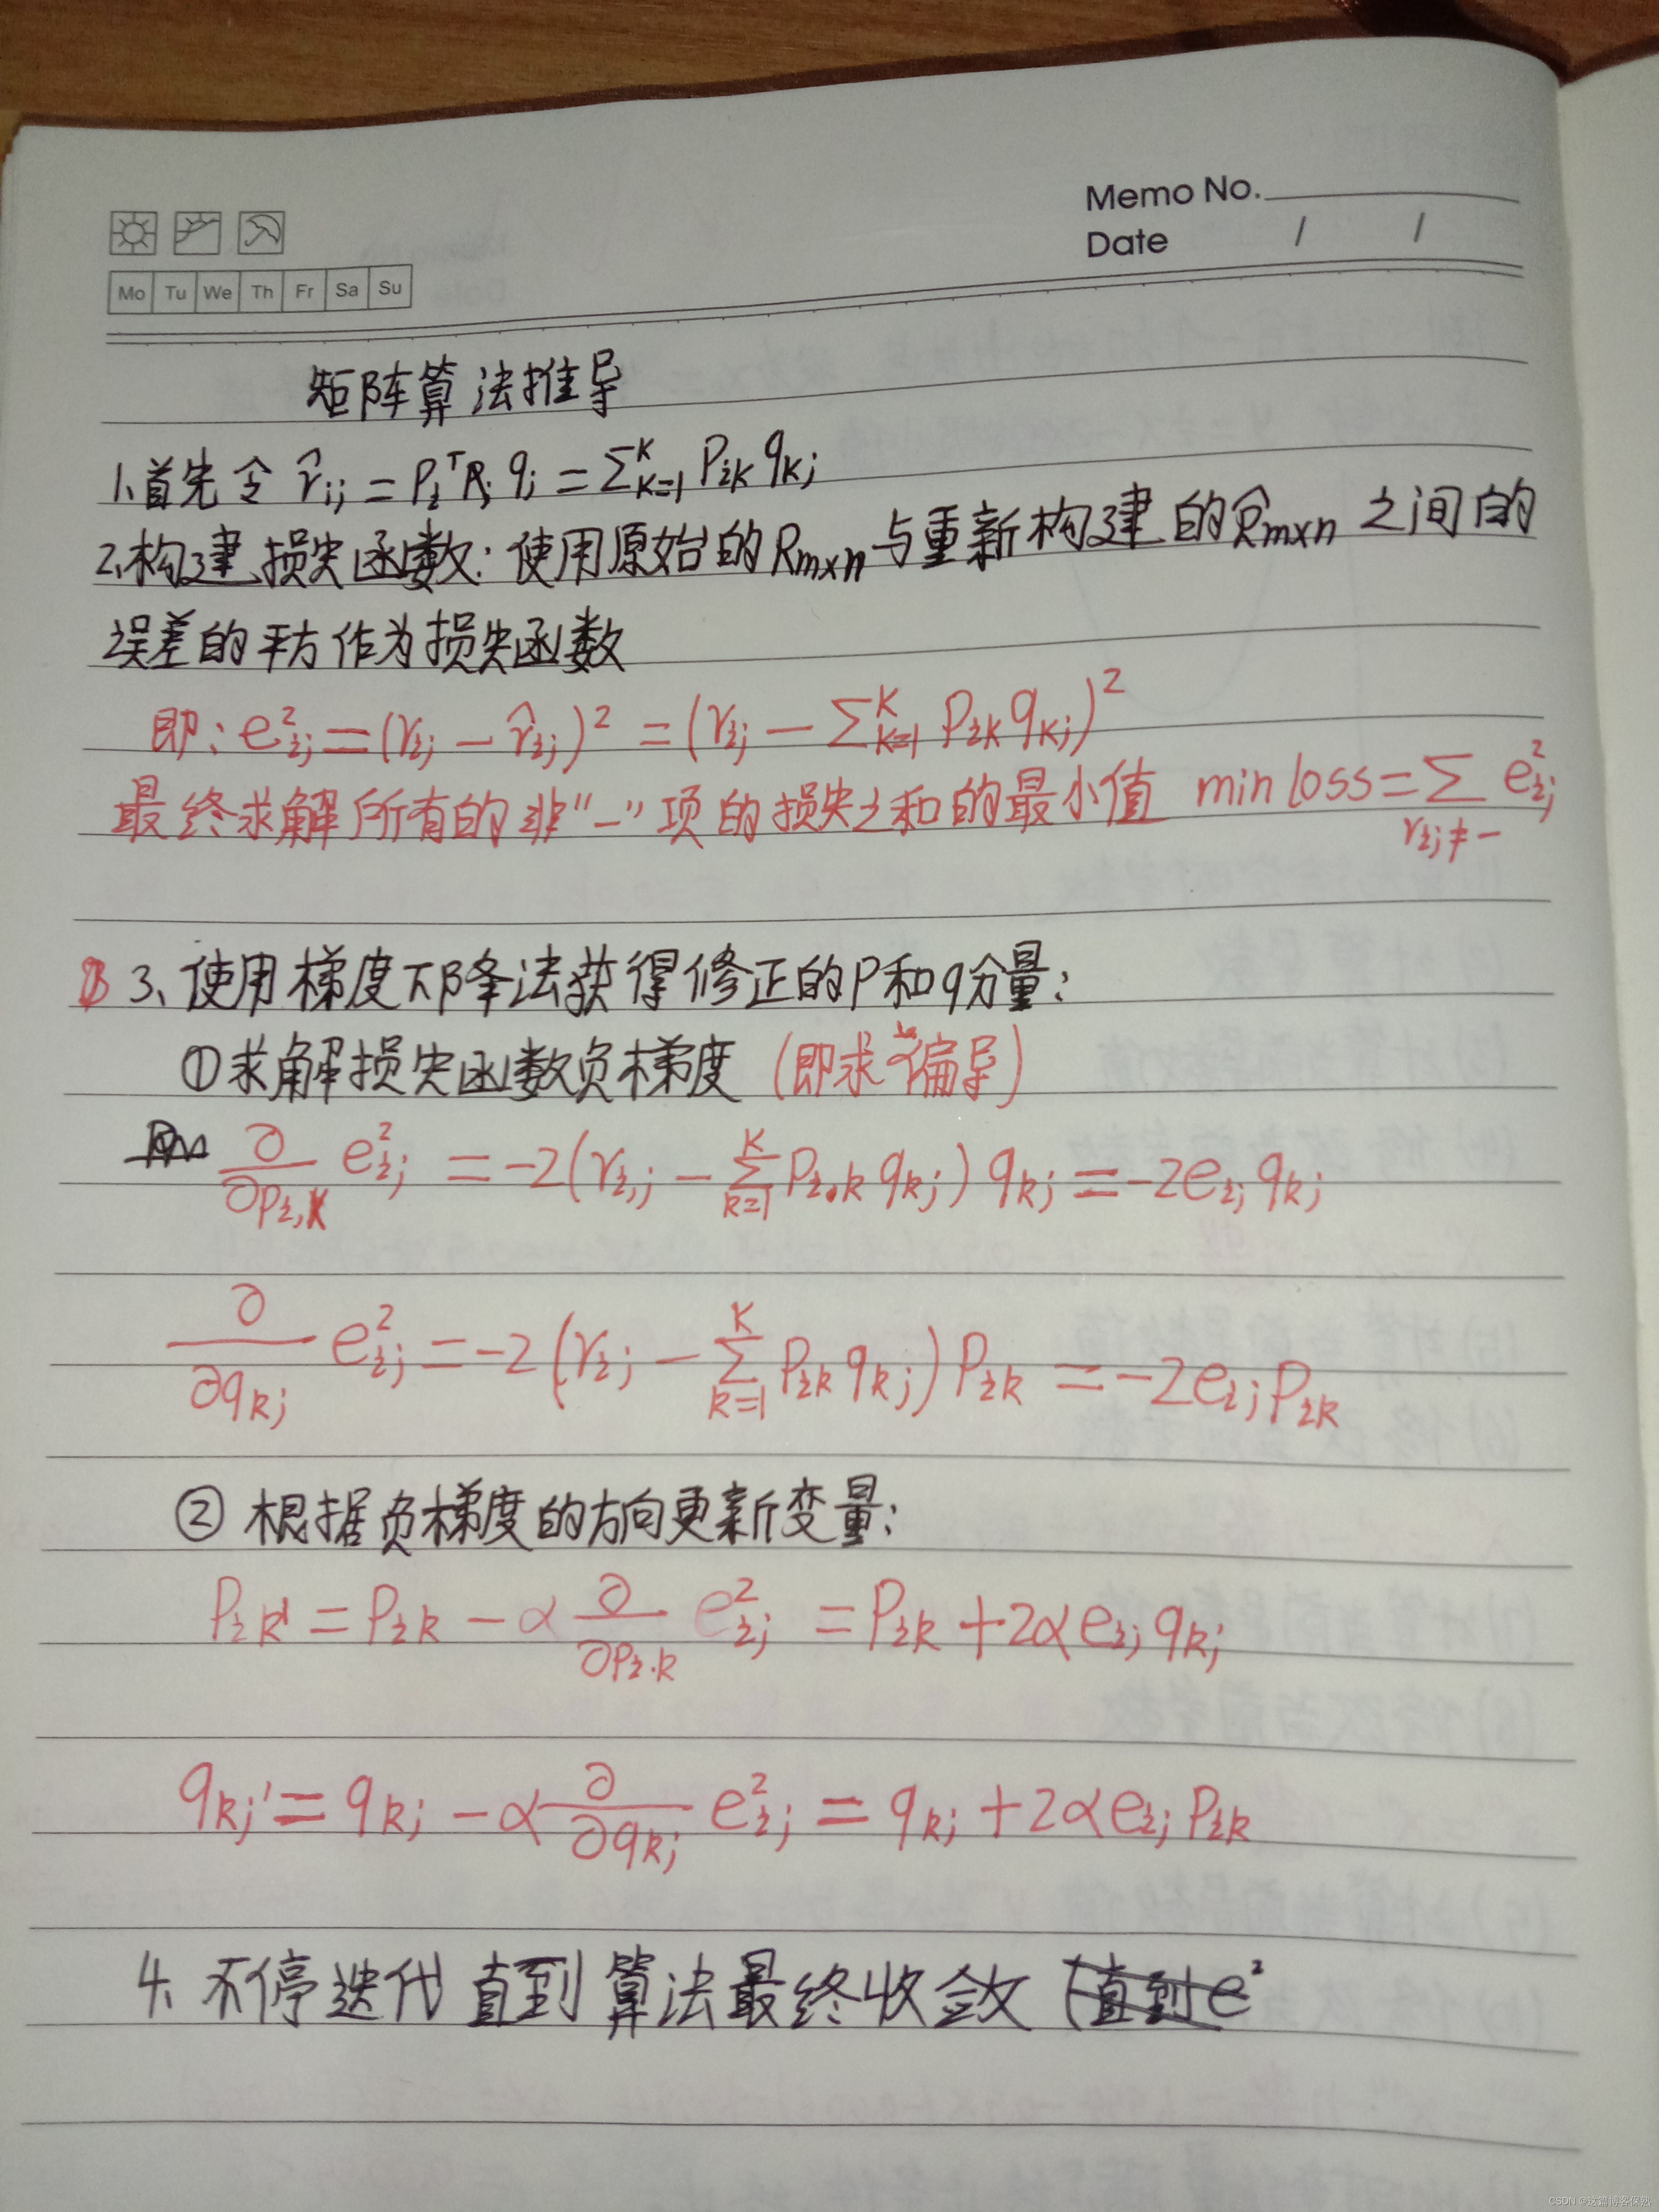 Memo No.
Date / /
Mo Tu We Th Fr Sa Su
矩阵算法推导
1.首先令 r̂ij = Pi^T qj = Σ_{K=1}^{K} Pik qkj
2.构建损失函数:使用原始的Rm×n与重新构建的R̂m×n之间的
误差的平方作为损失函数
即: e²ij = (rij - r̂ij)² = (rij - Σ_{K=1}^{K} Pik qkj)²
最终求解所有的非"-"项的损失之和的最小值 min loss = Σ_{rij≠-} e²ij
3、使用梯度下降法获得修正的P和q分量:
①求解损失函数负梯度 (即求偏导)
∂/∂Pi,k e²ij = -2(ri,j - Σ_{k=1}^{K} Pi,k qkj) qkj = -2eij qkj
∂/∂qkj e²ij = -2(rij - Σ_{k=1}^{K} Pik qkj) Pik = -2eij Pik
②根据负梯度的方向更新变量:
Pik' = Pik - α ∂/∂Pi.k e²ij = Pik + 2αeij qkj
qkj' = qkj - α ∂/∂qkj e²ij = qkj + 2αeij Pik
4、不停迭代直到算法最终收敛 (直到e²
CSDN @这篇博客保熟